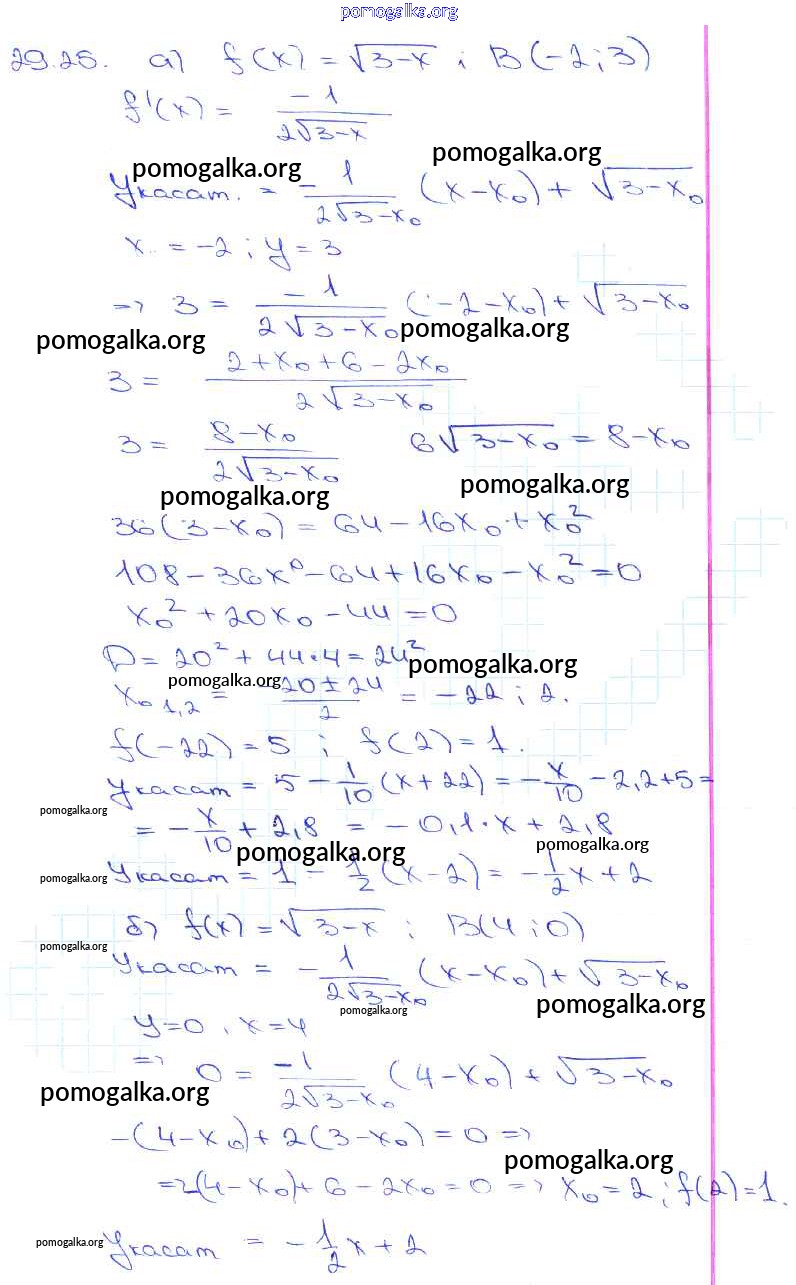 pomogalka.org
29.25. а) f(x) = √3-x ; B(-2;3)
f'(x) = -1/2√3-x
pomogalka.org pomogalka.org
Yкасат. = -1/2√3-x₀ (x-x₀) + √3-x₀
x = -2 ; y = 3
=> 3 = -1/2√3-x₀ (-2-x₀) + √3-x₀
pomogalka.org pomogalka.org
3 = 2+x₀+6-2x₀/2√3-x₀
3 = 8-x₀/2√3-x₀ 6√3-x₀ = 8-x₀
pomogalka.org pomogalka.org
36(3-x₀) = 64-16x₀+x₀²
108-36x⁰-64+16x₀-x₀²=0
x₀²+20x₀-44=0
D = 20²+44·4=24²
pomogalka.org pomogalka.org
x₀ 1,2 = -20±24/2 = -22 ; 2.
f(-22) = 5 ; f(2) = 1.
Yкасат = 5 - 1/10 (x+22) = -x/10 - 2,2+5 =
pomogalka.org
= -x/10 + 2,8 = -0,1·x + 2,8
pomogalka.org pomogalka.org
pomogalka.org
Yкасат = 1 - 1/2 (x-2) = -1/2 x + 2
б) f(x) = √3-x ; B(4;0)
pomogalka.org
Yкасат = -1/2√3-x₀ (x-x₀) + √3-x₀
pomogalka.org pomogalka.org
y=0, x=4
=> 0 = -1/2√3-x₀ (4-x₀) + √3-x₀
pomogalka.org
-(4-x₀)+2(3-x₀) = 0 =>
pomogalka.org
=-(4-x₀)+6-2x₀=0 => x₀=2 ; f(2)=1.
pomogalka.org
Yкасат = -1/2 x + 2